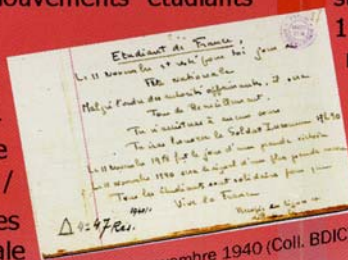 ouvements étudiants
Etudiant de France,
Le 11 Novembre est resté pour toi jour de
Fête Nationale
Malgré l'ordre des autorités opprimantes, il sera
Jour de Recueillement.
Tu n'assisteras à aucun cours
Tu iras honorer le Soldat Inconnu 17h30
Le 11 Novembre 1918 fut le jour d'une grande victoire
Le 11 Novembre 1940 sera le signal d'une plus grande encore
Tous les étudiants sont solidaires pour que
Vive la France
mbre 1940 (Coll. BDIC
e
/
es
ale